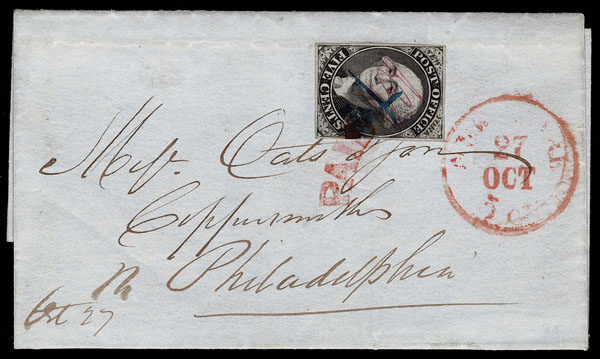 POST OFFICE
FIVE CENTS
PAID
27
OCT
Messrs Oats & Son
Coppersmiths
Philadelphia
Oct 27